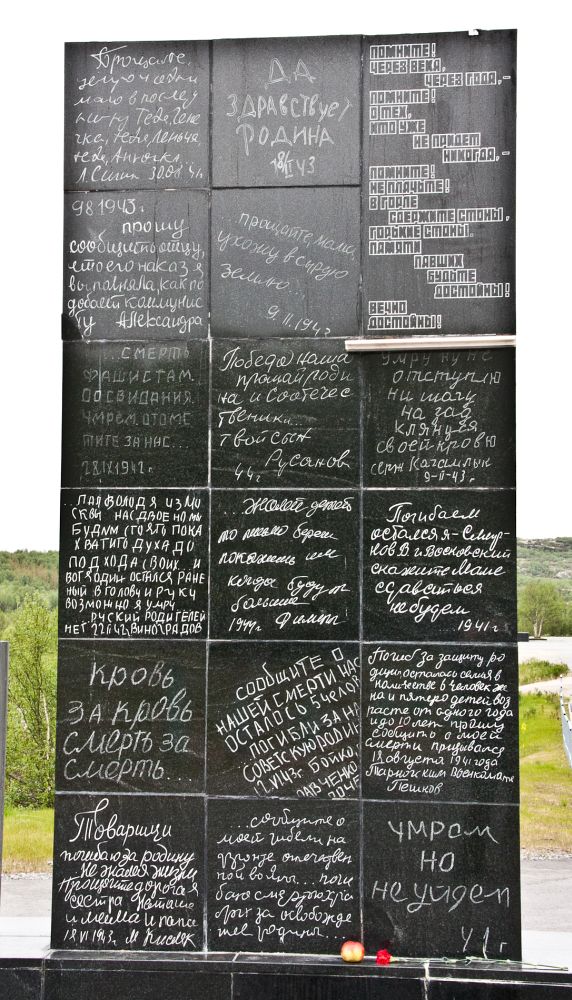 Прощайте,
в послед
нищу Тебе,
тебе,
тебе, Анночка...
30.01.41г
ДА
ЗДРАВСТВУЕТ
РОДИНА
43
ПОМНИТЕ!
ЧЕРЕЗ ВЕКА,
ЧЕРЕЗ ГОДА,-
ПОМНИТЕ!
О ТЕХ,
КТО УЖЕ
НЕ ПРИДЕТ
НИКОГДА,-
ПОМНИТЕ!
НЕ ПЛАЧЬТЕ!
В ГОРЛЕ
СДЕРЖИТЕ СТОНЫ,
ГОРЬКИЕ СТОНЫ.
ПАМЯТИ
ПАВШИХ
БУДЬТЕ
ДОСТОЙНЫ!
ВЕЧНО
ДОСТОЙНЫ!
9 8 1943г.
прошу
сообщить отцу,
что его наказ я
выполняла, как по
добает коммунис
ту Александра
...прощайте, мама,
ухожу в сырую
землю...
9.II.1942
...СМЕРТЬ
ФАШИСТАМ.
ДОСВИДАНИЯ.
УМРЕМ. ОТОМС
ТИТЕ ЗА НАС...
1942г
Победа наша
прощай роди
на и Соотечес
твеники...
твой сын
Русанов
44г
умру ну не
отступлю
ни шагу
на зад
клянуся
своей кровю
серж Кагамлык
9-II-43г
ВОЛОДЯ ИЗ МО
СКВЫ НАС ДВОЕ НО МЫ
БУДЫМ СТОЯТЬ ПОКА
ХВАТИТ ДУХА ДО
ПОДХОДА СВОИХ И
ВОТ Я ОДИН ОСТАЛСЯ РАНЕ
НЫЙ В ГОЛОВУ И РУКУ
ВОЗМОЖНО Я УМРУ
РУСКИЙ РОДИТЕЛЕЙ
НЕТ ВИНОГРАДОВ
...Жалей детей
то письмо береги
покажешь им
когда будут
больше
1944г
Погибаем
остался я-Смир-
нов В и Восковский
скажите маме
сдаваться
небудем
1941г
КРОВЬ
ЗА КРОВЬ
СМЕРТЬ ЗА
СМЕРТЬ...
СООБЩИТЕ О
НАШЕЙ СМЕРТИ НАС
ОСТАЛОСЬ 5 ЧЕЛОВ
ПОГИБЛИ ЗА НА
СОВЕТСКУЮ РОДИ
БОЙКО,
Погиб за защиту ро
дины, осталась семия в
количестве 6 человек же
на и пятеро детей воз
расте от одного года
и до 10 лет. прошу
собщить о моей
смерти призывался
18 августа 1941 года
Тарногским Военкоматом
Пешков
Товарищи
погибаю за родину
не жалея жизни
Прощайте дорогая
сестра Наташа
и мама и папа
18 VI 1943г. М Кисляк
...сообщите о
моей гибели на
фронте отечествен
ной войны... поги
баю смертью ге
за освобожде
ние родины...
УМРОМ
НО
НЕ УЙДЕМ
41г